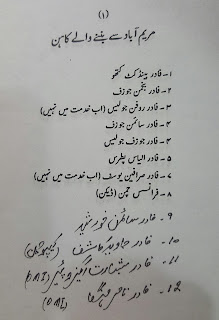 (۱)
مریم آباد سے بننے والے کاہن
۱- فادر بینڈکٹ کنتھو
۲- فادر بنجمن جوزف
۳- فادر روفن جولیس (اب خدمت میں نہیں)
۴- فادر سائمن جوزف
۴- فادر جوزف جولیس
۵- فادر الیاس پطرس
۷- فادر صرافین یوسف (اب خدمت میں نہیں)
۸- فرانسس چمن (ڈیکن)
۹- فادر سائمن خورشید
۱۰- فادر جاوید کاشف (کیپوچن)
۱۱- فادر بشارت (OMI)
۱۲- فادر ناصر (OMI)